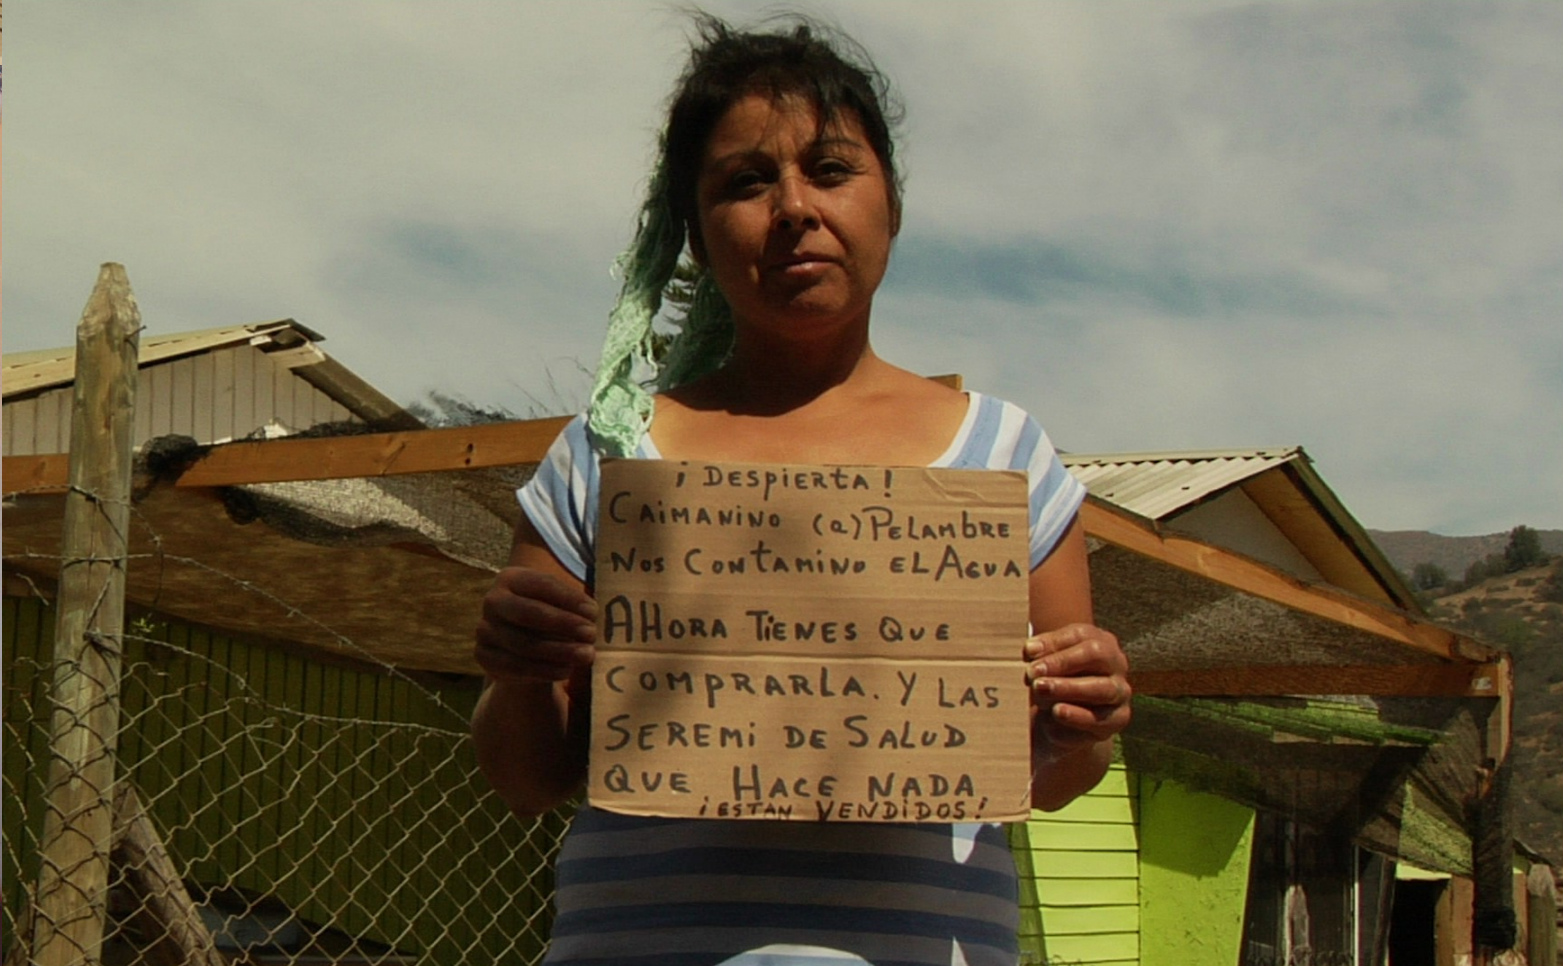 ¡DESPIERTA!
CAIMANINO (a) PELAMBRE
NOS CONTAMINO EL AGUA
AHORA TIENES QUE
COMPRARLA. Y LAS
SEREMI DE SALUD
QUE HACE NADA
¡ESTAN VENDIDOS!